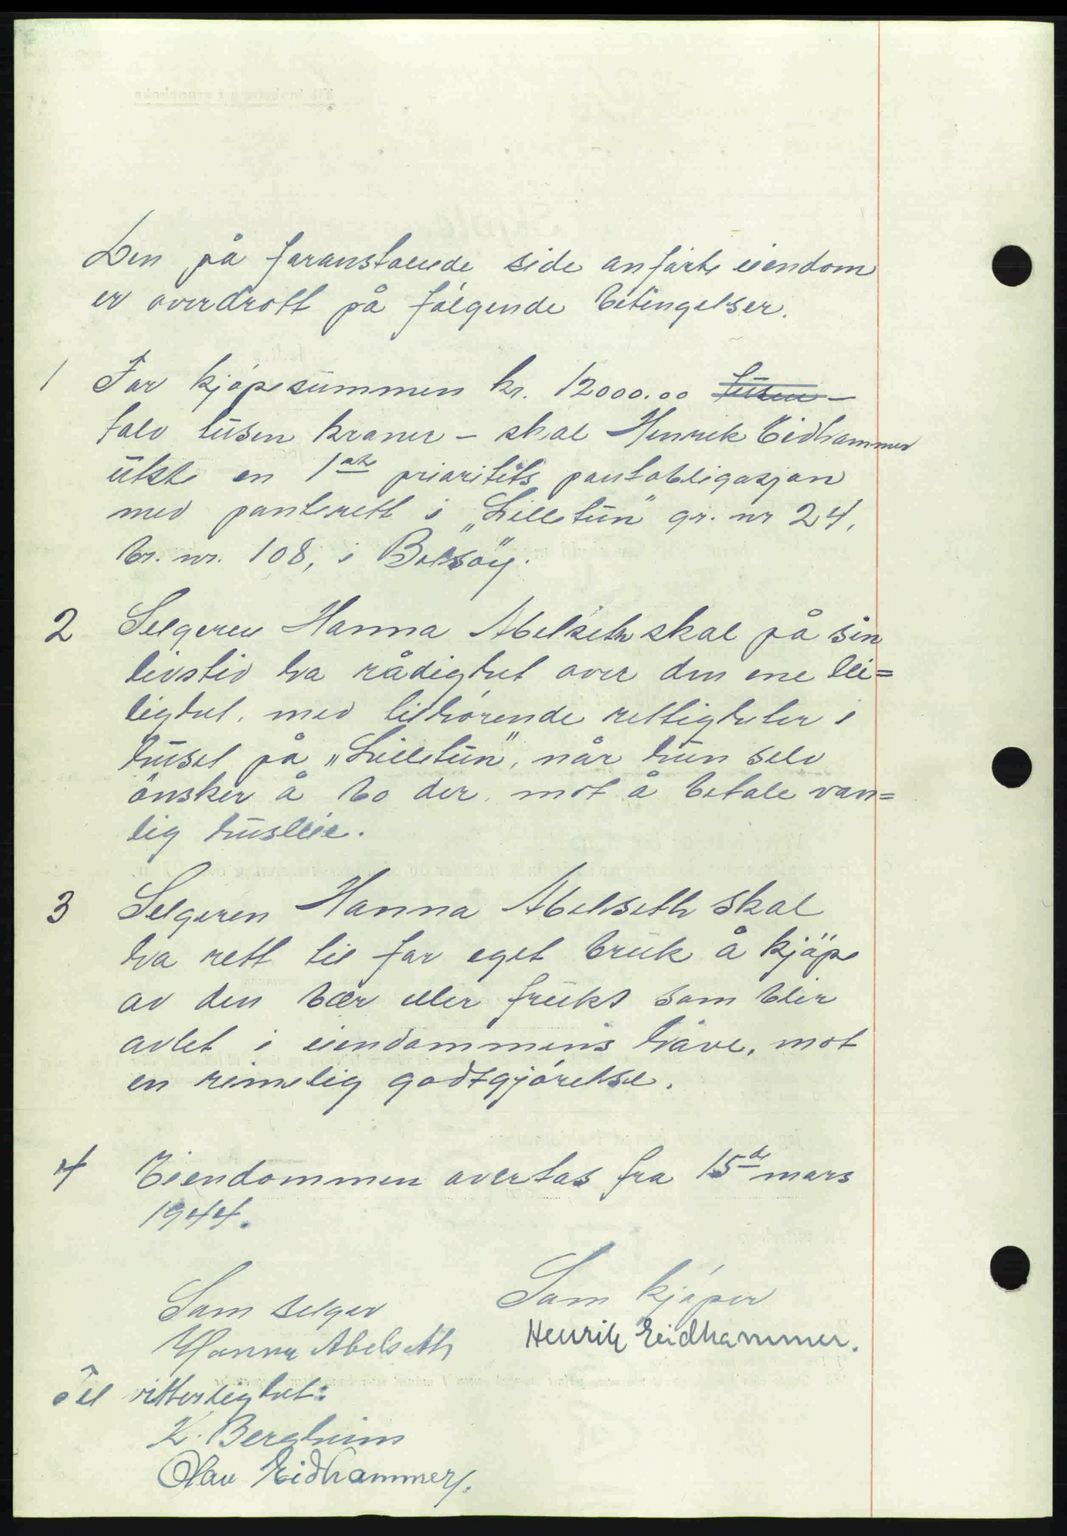 Den på foranstående side anførte eiendom
er overdratt på følgende betingelser.
1 For kjøpesummen kr. 12000.00 tusen –
tolv tusen kroner – skal Henrik Eidhammer
utste en 1ste prioritets pantobligasjon
med panterett i „Lilletun" gr. nr 24,
br. nr. 108, i Bolsøy.
2 Selgeren Hanna Abelseth skal på sin
livstid ha rådighet over den ene lei=
lighet, med tilhørende rettigheter i
huset på „Lilletun", når hun selv
ønsker å bo der, mot å betale van=
lig husleie.
3 Selgeren Hanna Abelseth skal
ha rett til for eget bruk å kjøpe
av den bær eller frukt som blir
avlet i eiendommens have, mot
en rimelig godtgjørelse.
4 Eiendommen overtas fra 15de mars
1944.
Som selger Som kjøper
Hanna Abelseth Henrik Eidhammer.
Til vitterlighet:
K. Bergheim
Olav Eidhammer.